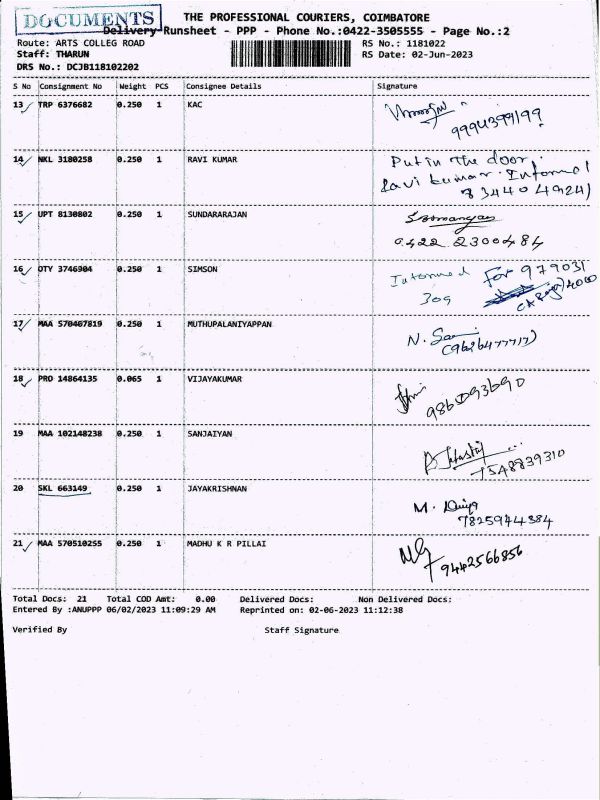 DOCUMENTS
THE PROFESSIONAL COURIERS, COIMBATORE
Delivery Runsheet - PPP - Phone No.:0422-3505555 - Page No.:2
Route: ARTS COLLEG ROAD RS No.: 1181022
Staff: THARUN RS Date: 02-Jun-2023
DRS No.: DCJB118102202
S No Consignment No Weight PCS Consignee Details Signature
13 TRP 6376682 0.250 1 KAC
9994399199
14 NKL 3180258 0.250 1 RAVI KUMAR Put in the door,
Ravi kumar. Informal
8344049241
15 UPT 8130802 0.250 1 SUNDARARAJAN
0422 2300484
16 OTY 3746904 0.250 1 SIMSON Informed For 979031
309 4000
17 MAA 570407819 0.250 1 MUTHUPALANIYAPPAN N.
18 PRO 14864135 0.065 1 VIJAYAKUMAR
19 MAA 102148238 0.250 1 SANJAIYAN
7548839310
20 SKL 663149 0.250 1 JAYAKRISHNAN M.
7825944384
21 MAA 570510255 0.250 1 MADHU K R PILLAI
9442566856
Total Docs: 21 Total COD Amt: 0.00 Delivered Docs: Non Delivered Docs:
Entered By :ANUPPP 06/02/2023 11:09:29 AM Reprinted on: 02-06-2023 11:12:38
Verified By Staff Signature